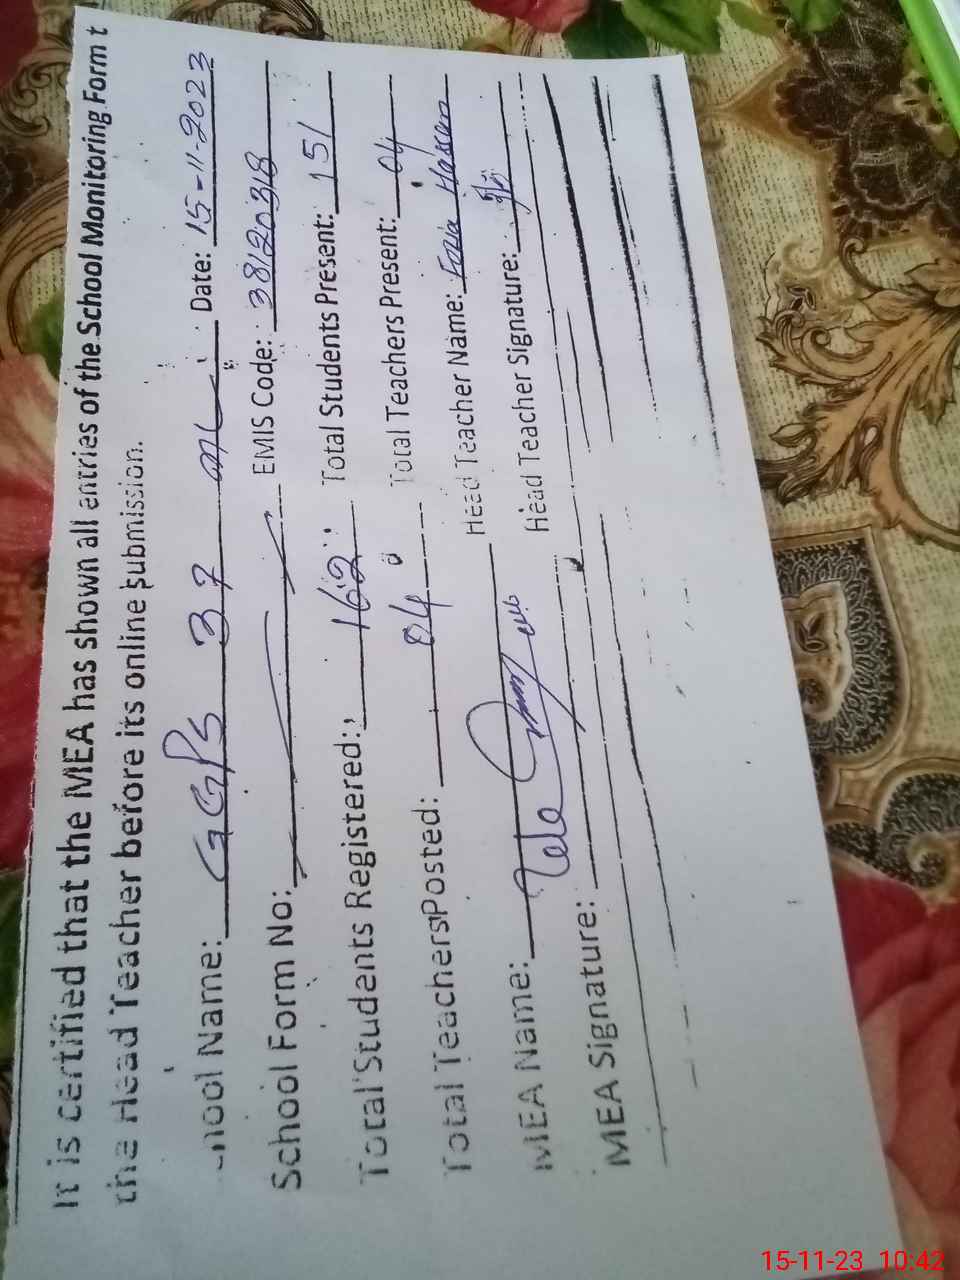 It is certified that the MEA has shown all entries of the School Monitoring Form t
the Head Teacher before its online submission.
hool Name: GGPS 37 ML Date: 15-11-2023
School Form No: EMIS Code: 38120318
Total Students Registered: 162 Total Students Present: 151
Total Teachers Posted: 04 Total Teachers Present: 04
MEA Name: Head Teacher Name: Fozia Hassan
MEA Signature: Head Teacher Signature:
15-11-23 10:42